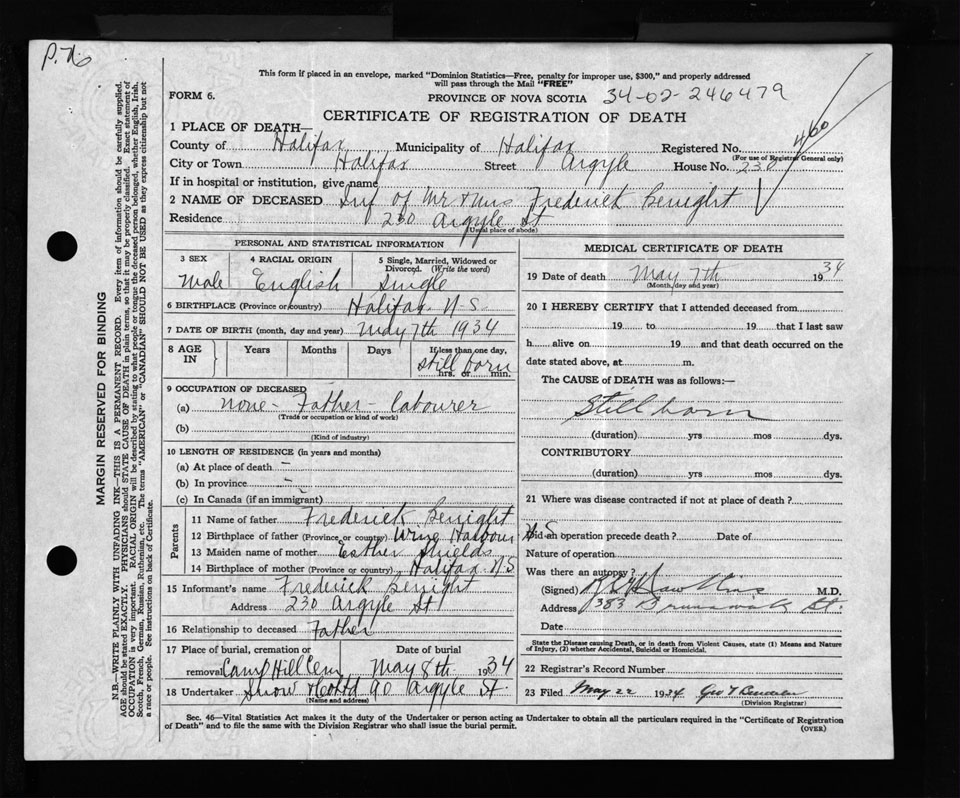 P. 76
This form if placed in an envelope, marked "Dominion Statistics—Free, penalty for improper use, $300," and properly addressed
will pass through the Mail "FREE"
FORM 6.
PROVINCE OF NOVA SCOTIA 34-02-246479
CERTIFICATE OF REGISTRATION OF DEATH
460
1 PLACE OF DEATH—
County of Halifax Municipality of Halifax Registered No.
(For use of Registrar General only)
City or Town Halifax Street Argyle House No. 230
If in hospital or institution, give name
2 NAME OF DECEASED Inf of Mr & Mrs Frederick Benight
Residence 230 Argyle St
(Usual place of abode)
PERSONAL AND STATISTICAL INFORMATION
3 SEX Male
4 RACIAL ORIGIN English
5 Single, Married, Widowed or Divorced. (Write the word) Single
6 BIRTHPLACE (Province or country) Halifax N.S.
7 DATE OF BIRTH (month, day and year) May 7th 1934
8 AGE IN Years Months Days If less than one day, still born hrs. or min.
9 OCCUPATION OF DECEASED
(a) none - Father - labourer
(Trade or occupation or kind of work)
(b)
(Kind of industry)
10 LENGTH OF RESIDENCE (in years and months)
(a) At place of death —
(b) In province —
(c) In Canada (if an immigrant)
Parents
11 Name of father Frederick Benight
12 Birthplace of father (Province or country) Wine Harbour N.S
13 Maiden name of mother Esther Shields
14 Birthplace of mother (Province or country) Halifax N.S
15 Informant's name Frederick Benight
Address 230 Argyle St
16 Relationship to deceased Father
17 Place of burial, cremation or removal Camp Hill Cem Date of burial May 8th 1934
18 Undertaker Snow & Co Ltd 90 Argyle St.
(Name and address)
MEDICAL CERTIFICATE OF DEATH
19 Date of death May 7th 1934
(Month, day and year)
20 I HEREBY CERTIFY that I attended deceased from
19 to 19 that I last saw
h alive on 19 and that death occurred on the
date stated above, at m.
The CAUSE of DEATH was as follows:—
Still born
(duration) yrs mos dys.
CONTRIBUTORY
(duration) yrs mos dys.
21 Where was disease contracted if not at place of death?
Did an operation precede death? Date of
Nature of operation
Was there an autopsy?
(Signed) M.D.
Address 383 Brunswick St.
Date
State the Disease causing Death, or in death from Violent Causes, state (1) Means and Nature
of Injury, (2) whether Accidental, Suicidal or Homicidal.
22 Registrar's Record Number
23 Filed May 22 1934 Geo
(Division Registrar)
Sec. 46—Vital Statistics Act makes it the duty of the Undertaker or person acting as Undertaker to obtain all the particulars required in the "Certificate of Registration
of Death" and to file the same with the Division Registrar who shall issue the burial permit.
(OVER)
MARGIN RESERVED FOR BINDING
N.B.—WRITE PLAINLY WITH UNFADING INK—THIS IS A PERMANENT RECORD. Every item of information should be carefully supplied.
AGE should be stated EXACTLY. PHYSICIANS should STATE CAUSE OF DEATH in plain terms, so that it may be properly classified. Exact statement of
OCCUPATION is very important. RACIAL ORIGIN will be described by stating to what people or tongue the deceased person belonged, whether English, Irish,
Scotch, French, German, Russian, Ruthenian, etc. The terms "AMERICAN" or "CANADIAN" SHOULD NOT BE USED as they express citizenship but not
a race or people. See instructions on back of Certificate.